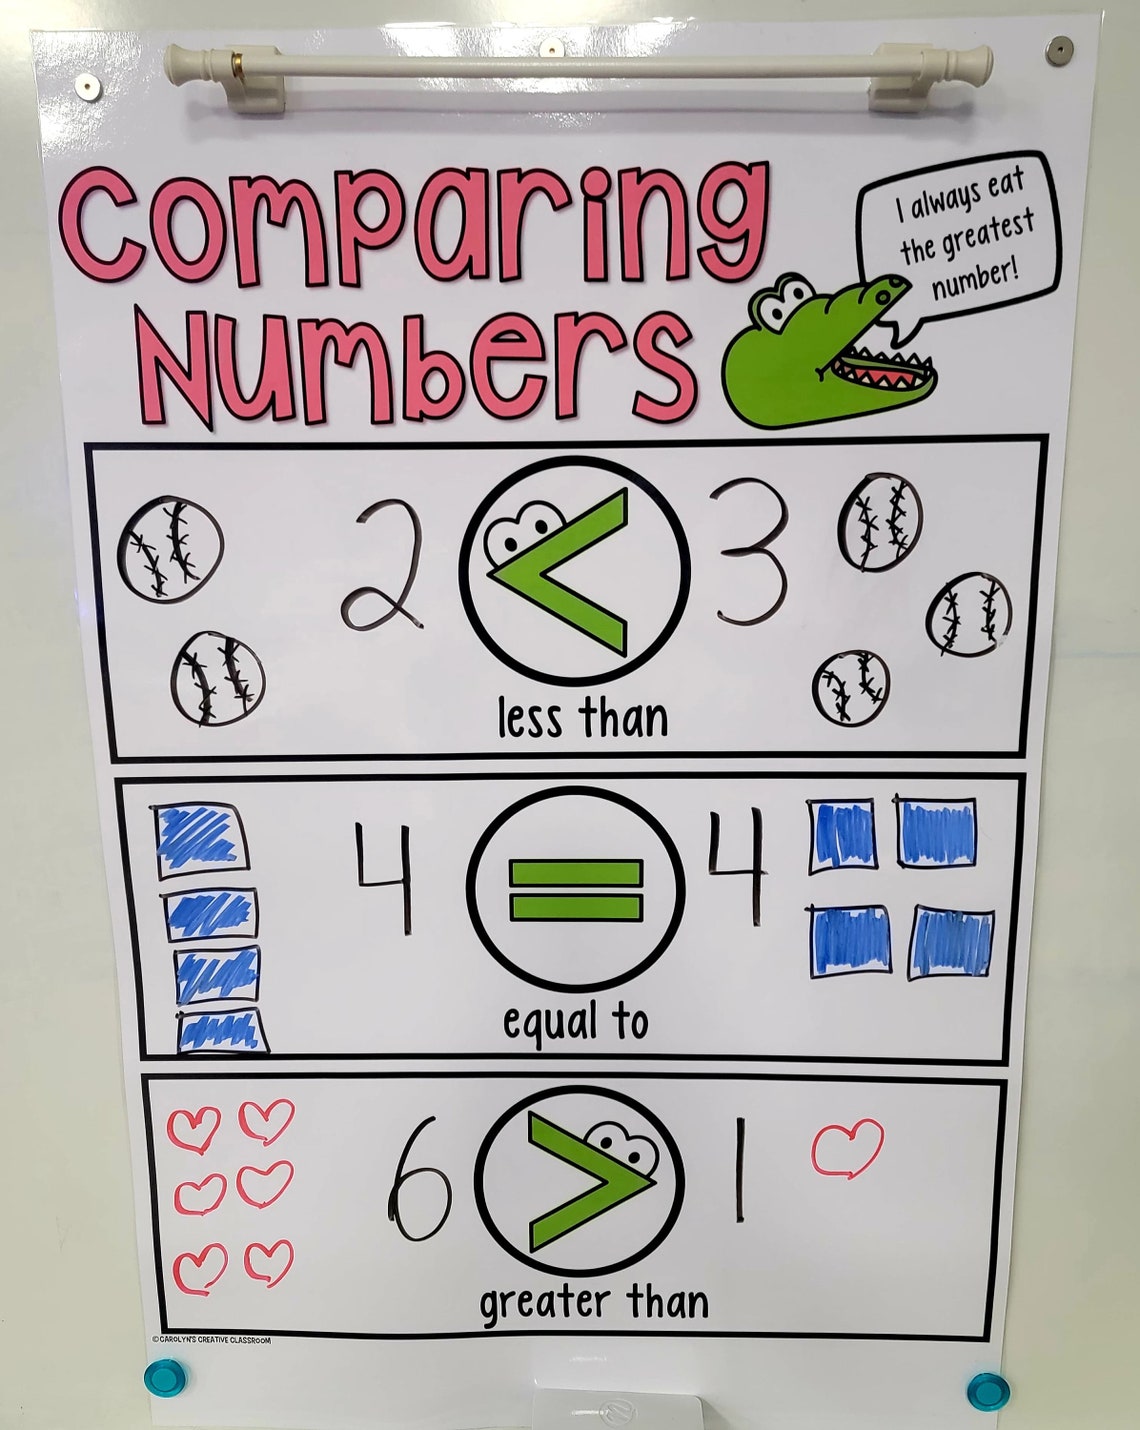 Comparing
Numbers
I always eat
the greatest
number!
2 < 3
less than
4 = 4
equal to
6 > 1
greater than
©CAROLYN'S CREATIVE CLASSROOM